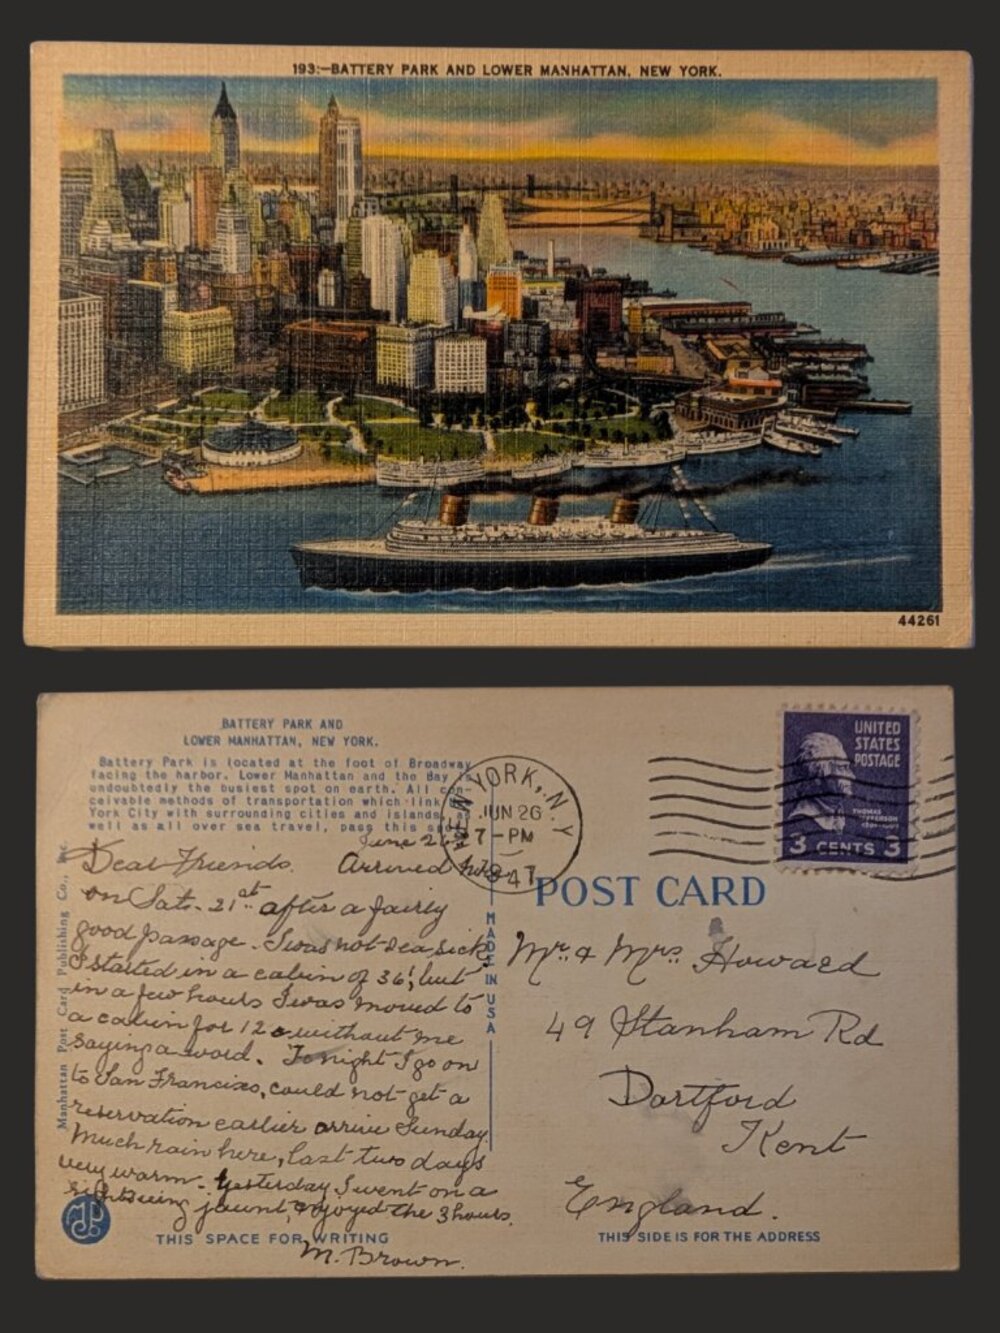 193:—BATTERY PARK AND LOWER MANHATTAN, NEW YORK.
44261
BATTERY PARK AND
LOWER MANHATTAN, NEW YORK.
Battery Park is located at the foot of Broadway
facing the harbor. Lower Manhattan and the Bay is
undoubtedly the busiest spot on earth. All con-
ceivable methods of transportation which link
York City with surrounding cities and islands, as
well as all over sea travel, pass this
NEW YORK, N.Y.
JUN 26
7-PM
1947
UNITED
STATES
POSTAGE
THOMAS
JEFFERSON
3 CENTS 3
June 26
Dear Friends. Arrived here
on Sat. 21st after a fairly
good passage. I was not sea sick.
I started in a cabin of 36, but
in a few hours I was moved to
a cabin for 12 without me
saying a word. Tonight I go on
to San Francisco, could not get a
reservation earlier arrive Sunday.
Much rain here, last two days
very warm. Yesterday I went on a
sightseeing jaunt, enjoyed the 3 hours.
M. Brown.
POST CARD
Mr. & Mrs. Howard
49 Stanham Rd
Dartford
Kent
England.
MADE IN USA
Manhattan Post Card Publishing Co., Inc.
THIS SPACE FOR WRITING
THIS SIDE IS FOR THE ADDRESS